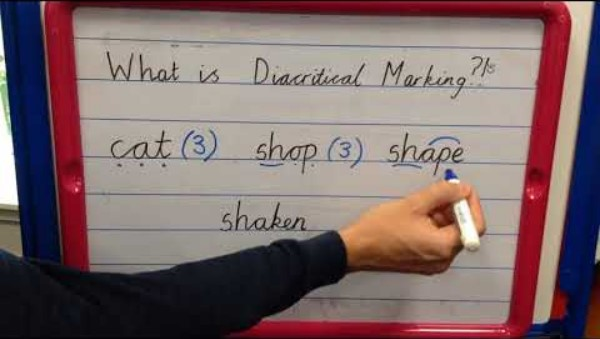 What is Diacritical Marking?
cat (3) shop (3) shape
shaken